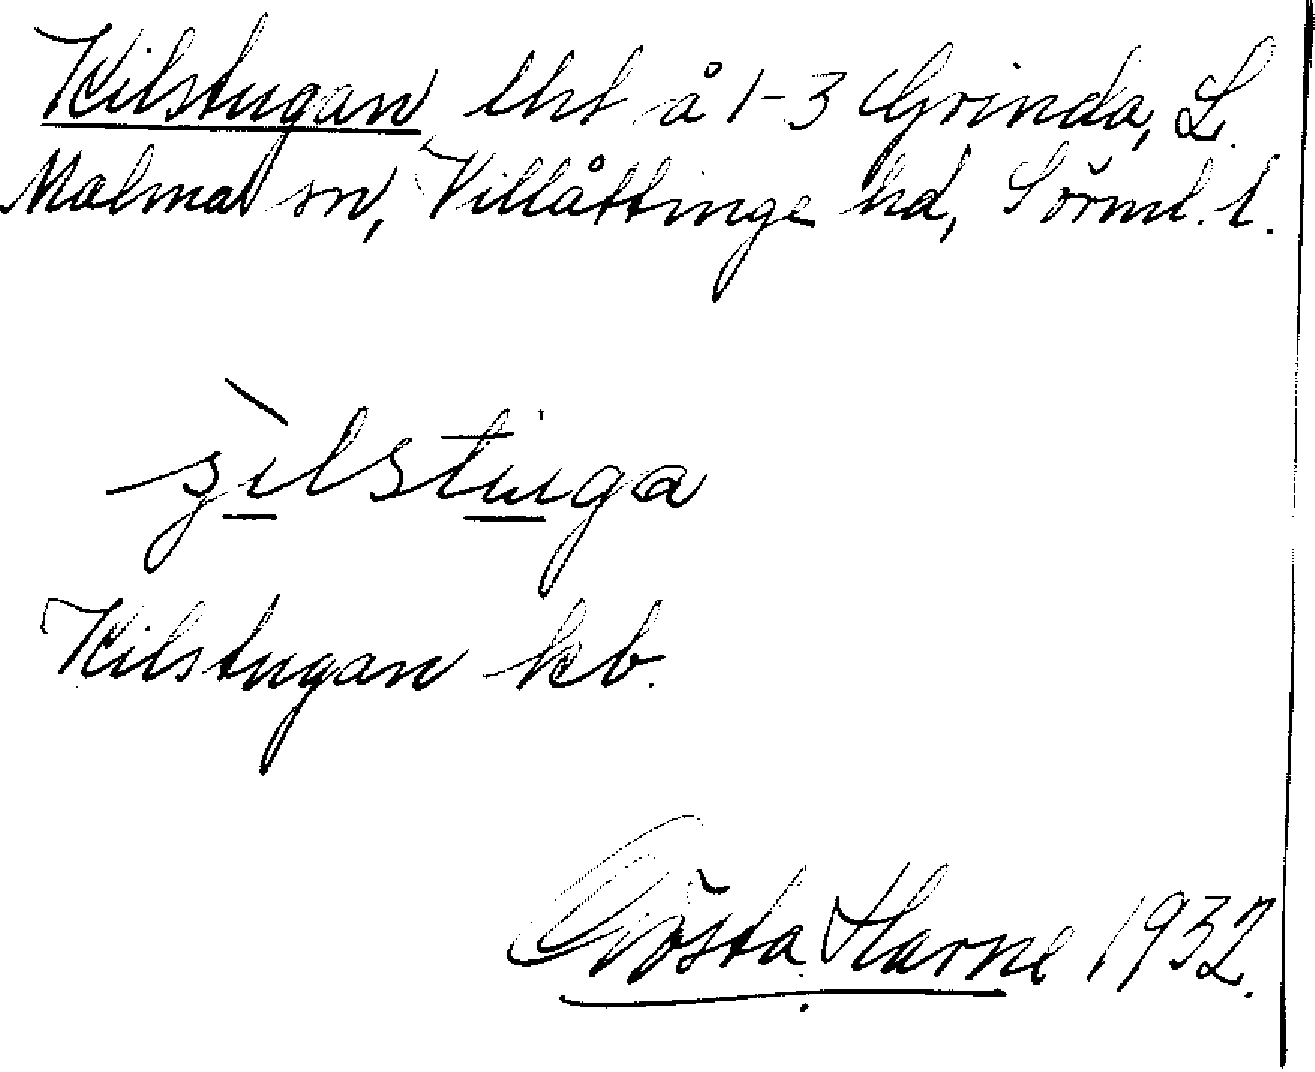 Kilstugan, lht å 1-3 Grinda, L.
Malma sn, Villåttinge hd, Sörml. l.
Kilstugan kb.
Gösta Harne 1932.